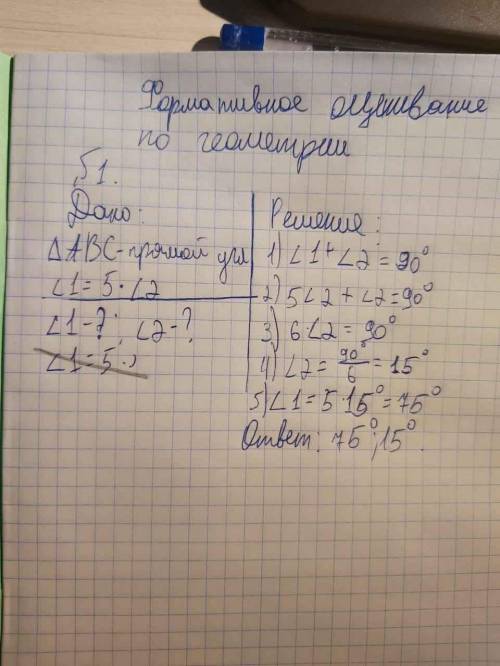 Формативное оценивание
по геометрии
№1.
Дано:
△ABC-прямой угл
∠1=5·∠2
∠1-?; ∠2-?
∠1=5·
Решение:
1) ∠1+∠2=90°
2) 5∠2+∠2=90°
3) 6·∠2=90°
4) ∠2=90°/6=15°
5) ∠1=5·15°=75°
Ответ: 75°;15°.